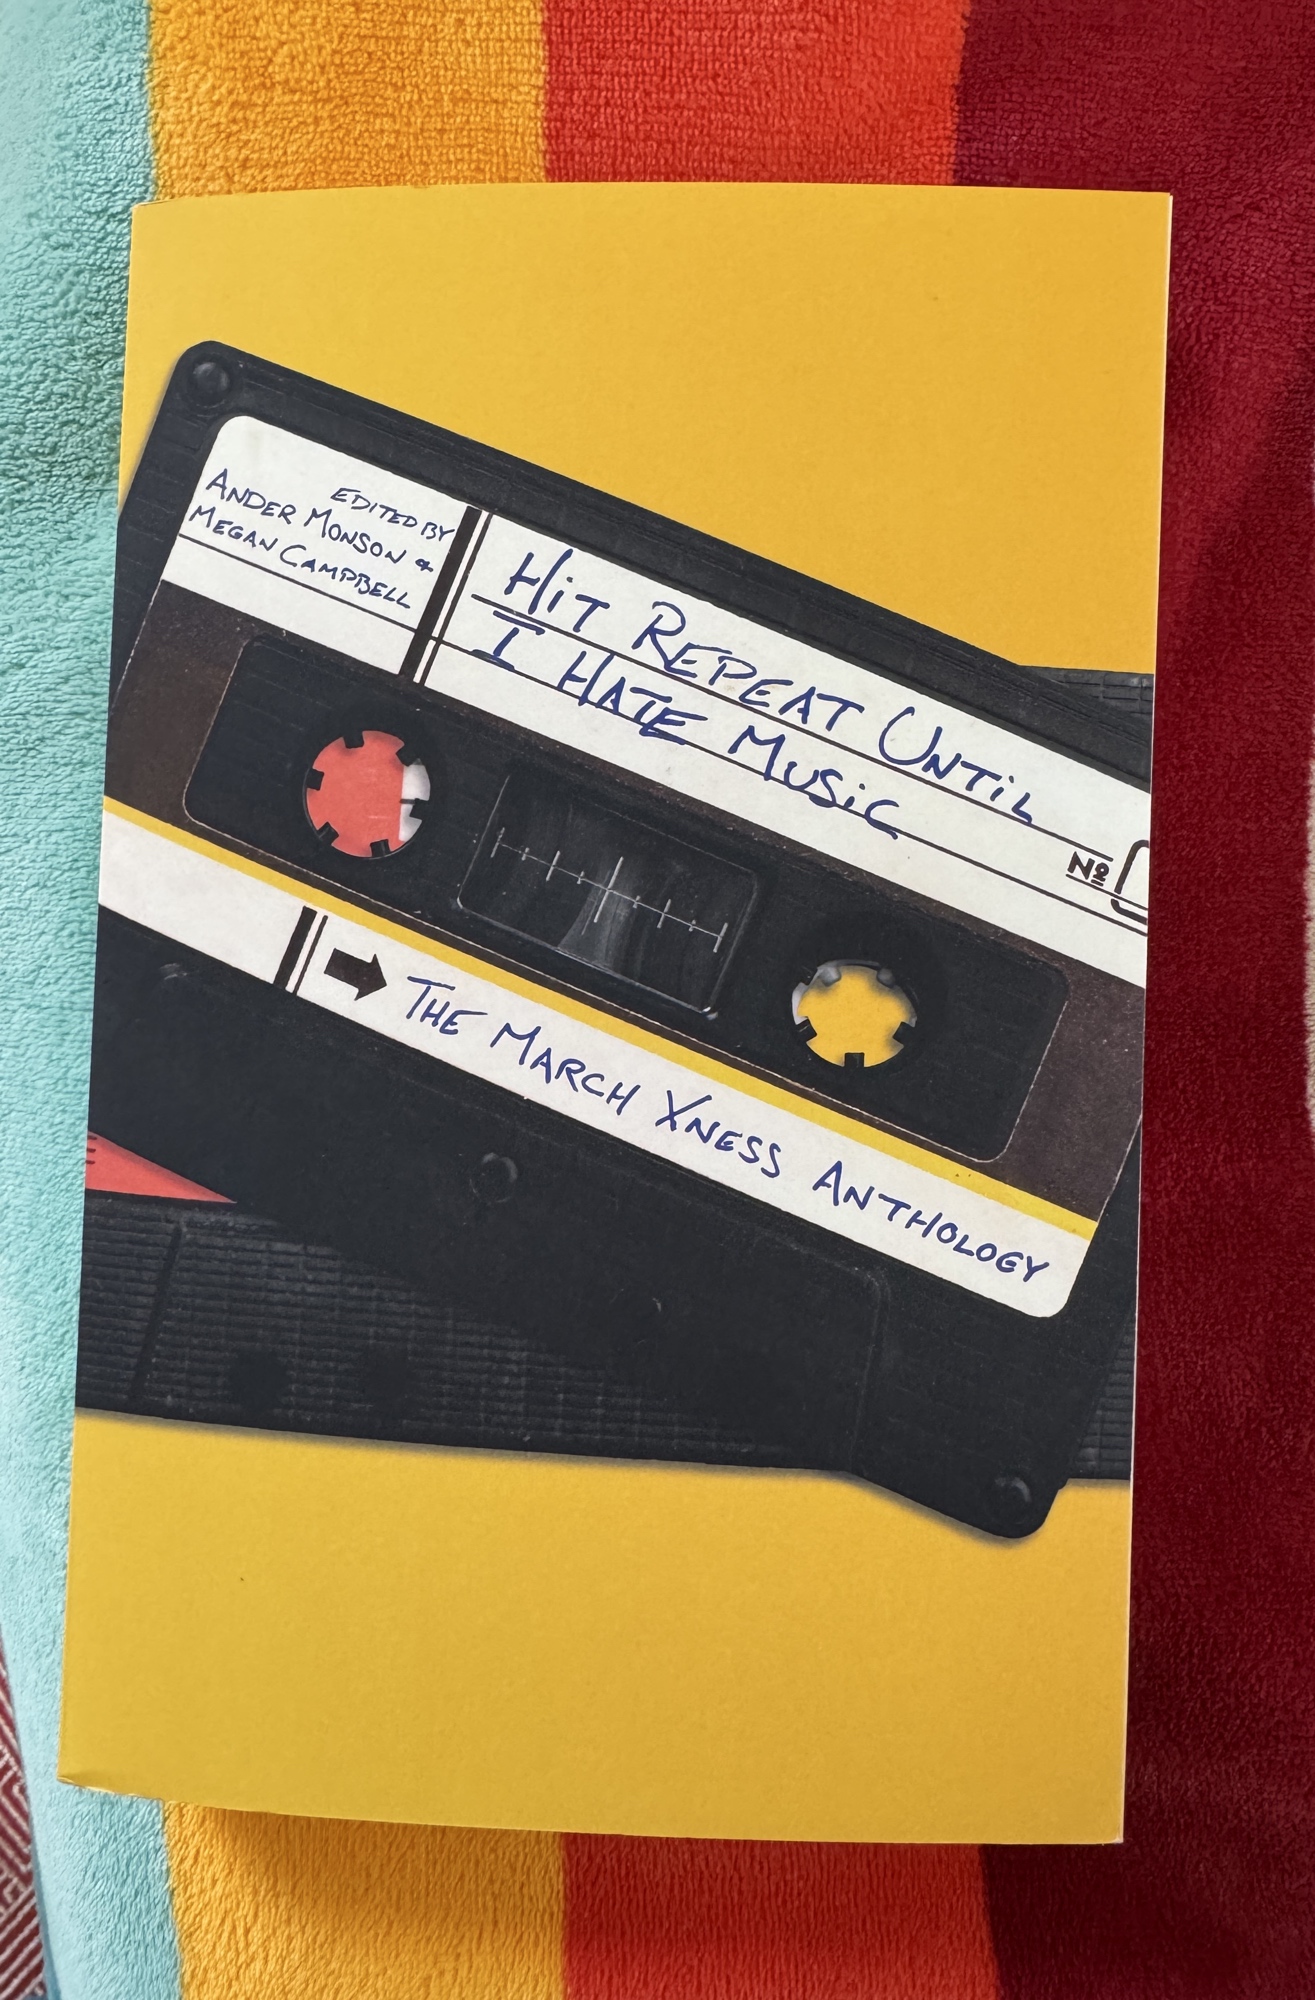 EDITED BY
ANDER MONSON &
MEGAN CAMPBELL
HiT REPEAT UNTiL
I HATE MUSiC
Nº
THE MARCH XNESS ANTHOLOGY